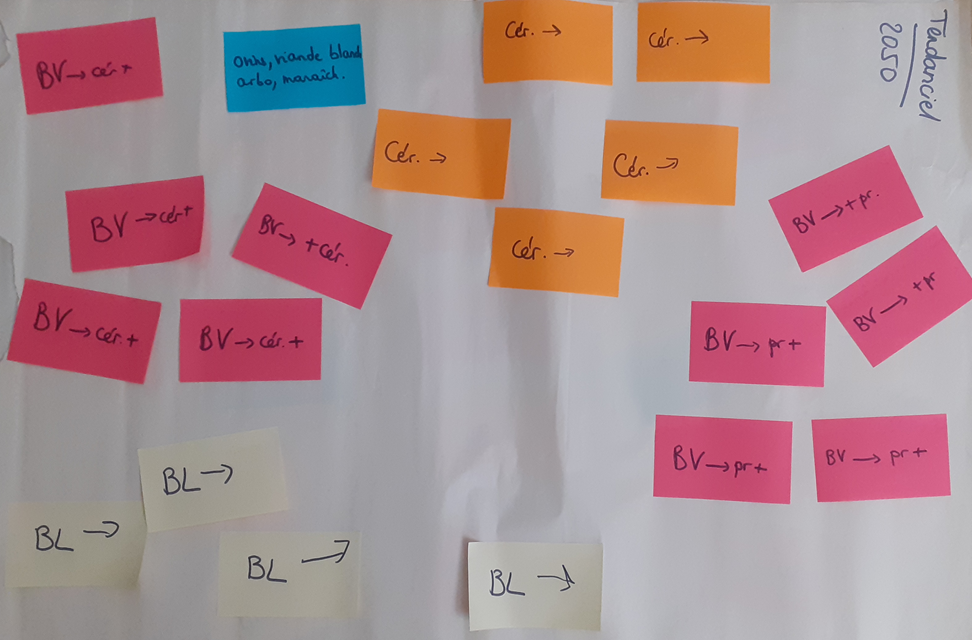 Tendanciel
2050
BV → cér +
ovins, viande blanche
arbo, maraîch.
Cér. →
Cér. →
Cér. →
Cér. →
Cér. →
BV → cér +
BV → + cér.
BV → cér. +
BV → cér. +
BV → + pr.
BV → + pr
BV → pr +
BV → pr +
BV → pr +
BL →
BL →
BL →
BL →